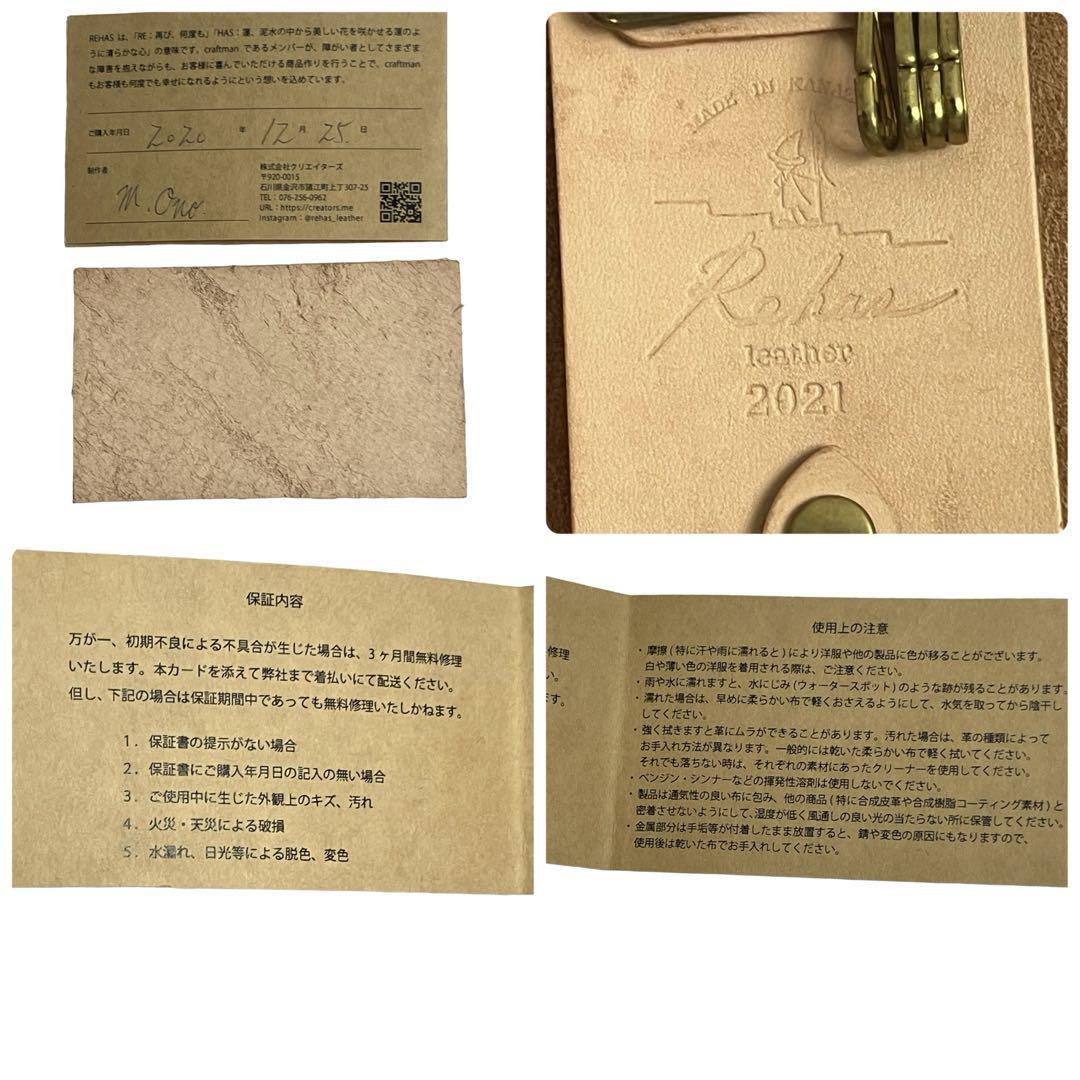 REHAS は、「RE：再び、何度も」「HAS：蓮、泥水の中から美しい花を咲かせる蓮のよ
うに清らかな心」の意味です。craftman であるメンバーが、障がい者としてさまざま
な障害を抱えながらも、お客様に喜んでいただける商品作りを行うことで、craftman
もお客様も何度でも幸せになれるようにという想いを込めています。
ご購入年月日 2020 年 12 月 25 日
制作者
M. Ono.
株式会社クリエイターズ
〒920-0015
石川県金沢市諸江町上丁307-25
TEL：076-256-0962
URL：https://creators.me
Instagram：@rehas_leather
MADE IN KANAZ
Rehas
leather
2021
保証内容
万が一、初期不良による不具合が生じた場合は、3ヶ月間無料修理
いたします。本カードを添えて弊社まで着払いにて配送ください。
但し、下記の場合は保証期間中であっても無料修理いたしかねます。
1．保証書の提示がない場合
2．保証書にご購入年月日の記入の無い場合
3．ご使用中に生じた外観上のキズ、汚れ
4．火災・天災による破損
5．水漏れ、日光等による脱色、変色
修理
い。
す。
使用上の注意
・摩擦(特に汗や雨に濡れると)により洋服や他の製品に色が移ることがございます。
白や薄い色の洋服を着用される際は、ご注意ください。
・雨や水に濡れますと、水にじみ(ウォータースポット)のような跡が残ることがあります。
・濡れた場合は、早めに柔らかい布で軽くおさえるようにして、水気を取ってから陰干し
してください。
・強く拭きますと革にムラができることがあります。汚れた場合は、革の種類によって
お手入れ方法が異なります。一般的には乾いた柔らかい布で軽く拭いてください。
それでも落ちない時は、それぞれの素材にあったクリーナーを使用してください。
・ベンジン・シンナーなどの揮発性溶剤は使用しないでください。
・製品は通気性の良い布に包み、他の商品(特に合成皮革や合成樹脂コーティング素材)と
密着させないようにして、湿度が低く風通しの良い光の当たらない所に保管してください。
・金属部分は手垢等が付着したまま放置すると、錆や変色の原因にもなりますので、
使用後は乾いた布でお手入れしてください。